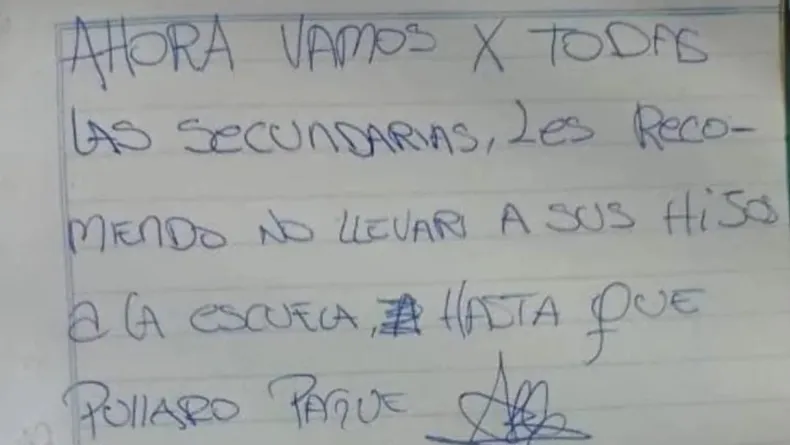 AHORA VAMOS X TODAS
LAS SECUNDARIAS, Les RECO-
MIENDO NO LLEVAR A SUS HIJOS
a LA escuela, HASTA QUE
PULLARO PAGUE